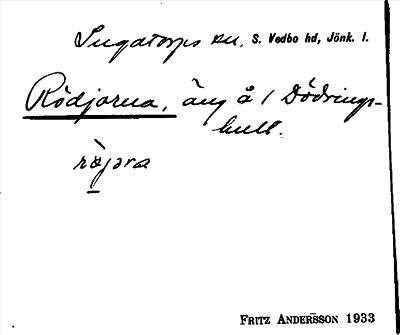 Ingatorps sn, S. Vedbo hd, Jönk. l.
Rödjorna, äng å 1 Dödrings-
hult.
röjora
FRITZ ANDERSSON 1933